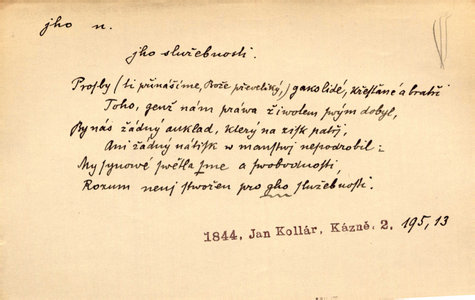 jho n.
jho služebnosti.
Prosby (ti přinášíme, Bože převeliký,) gako lidé, křesťané a bratři
Toho, genž nám práwa žiwotem swým dobyl,
By nás žádný auklad, který na zisk patří,
Ani žádný nátisk w manstwj nepodrobil:
My synowé swětla sme a swobodnosti,
Rozum nenj stwořen pro gho služebnosti.
1844, Jan Kollár, Kázně. 2. 195,13